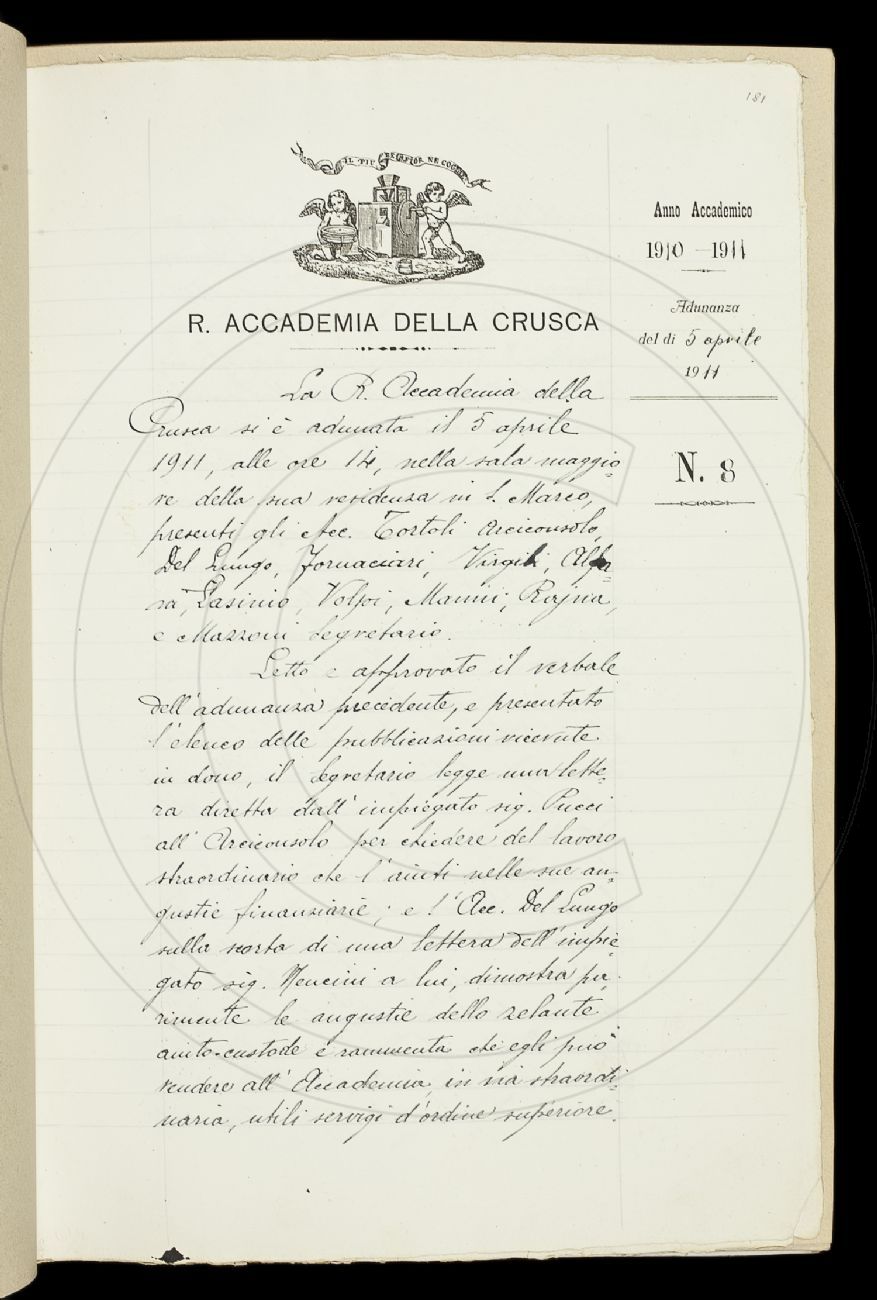 181
IL PIÙ BEL FIOR NE COGLIE
R. ACCADEMIA DELLA CRUSCA
Anno Accademico
1910–1911
Adunanza
del dì 5 aprile
1911
N. 8
La R. Accademia della
Crusca si è adunata il 5 aprile
1911, alle ore 14, nella sala maggio-
re della sua residenza in S. Marco,
presenti gli Acc. Tortoli Arciconsolo,
Del Lungo, Fornaciari, Virgili,
Lasinio, Volpi, Manni, Rajna,
e Mazzoni Segretario.
Letto e approvato il verbale
dell'adunanza precedente, e presentato
l'elenco delle pubblicazioni ricevute
in dono, il Segretario legge una lette-
ra diretta dall'impiegato sig. Pucci
all'Arciconsolo per chiedere del lavoro
straordinario che l'aiuti nelle sue an-
gustie finanziarie; e l'Acc. Del Lungo
sulla scorta di una lettera dell'impie-
gato sig. Mencini a lui, dimostra pa-
rimente le angustie dello zelante
aiuto-custode e rammenta che egli può
rendere all'Accademia, in via straordi-
naria, utili servigi d'ordine superiore.